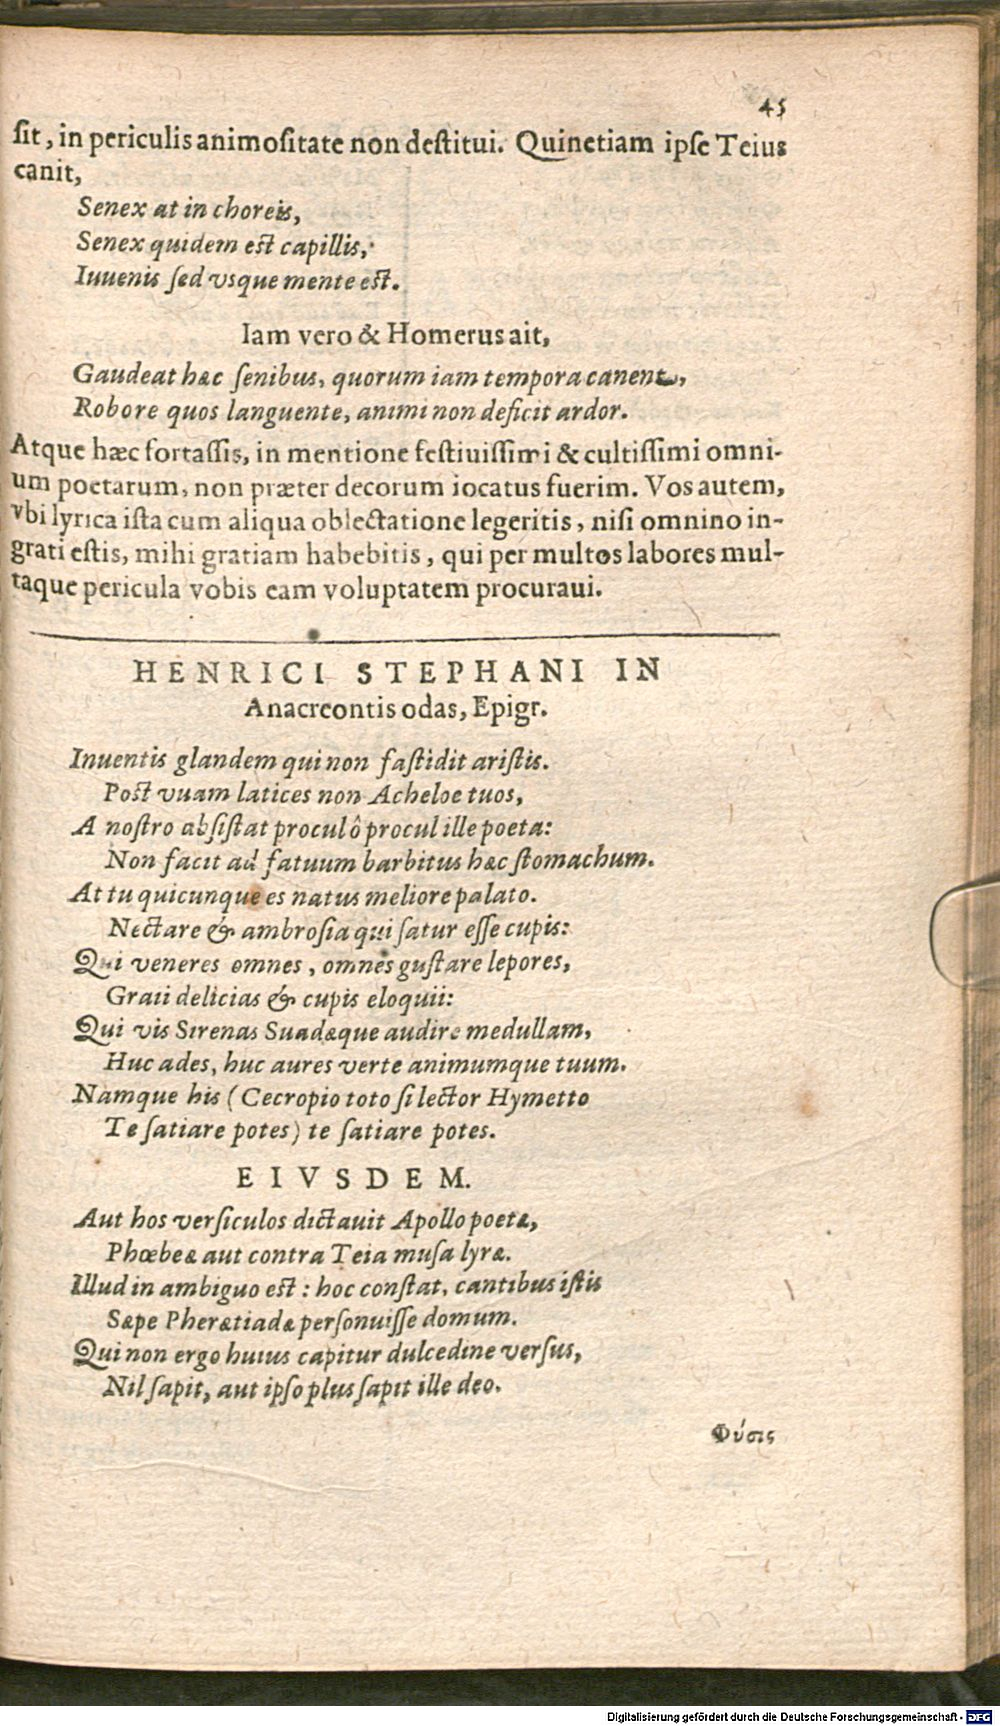 45
ſit, in periculis animoſitate non deſtitui. Quinetiam ipſe Teius
canit,
Senex at in choreis,
Senex quidem eſt capillis,
Iuuenis ſed vsque mente eſt.
Iam vero & Homerus ait,
Gaudeat hæc ſenibus, quorum iam tempora canent,
Robore quos languente, animi non deficit ardor.
Atque hæc fortaſſis, in mentione feſtiuiſſimi & cultiſſimi omni-
um poetarum, non præter decorum iocatus fuerim. Vos autem,
vbi lyrica iſta cum aliqua oblectatione legeritis, niſi omnino in-
grati eſtis, mihi gratiam habebitis, qui per multos labores mul-
taque pericula vobis eam voluptatem procuraui.
HENRICI STEPHANI IN
Anacreontis odas, Epigr.
Inuentis glandem qui non faſtidit ariſtis.
Poſt vuam latices non Acheloe tuos,
A noſtro abſiſtat procul ô procul ille poeta:
Non facit ad fatuum barbitus hæc ſtomachum.
At tu quicunque es natus meliore palato.
Nectare & ambroſia qui ſatur eſſe cupis:
Qui veneres omnes, omnes guſtare lepores,
Graii delicias & cupis eloquii:
Qui vis Sirenas Suadæque audire medullam,
Huc ades, huc aures verte animumque tuum.
Namque his (Cecropio toto ſi lector Hymetto
Te ſatiare potes) te ſatiare potes.
EIVSDEM.
Aut hos verſiculos dictauit Apollo poetæ,
Phœbeæ aut contra Teia muſa lyræ.
Illud in ambiguo eſt: hoc conſtat, cantibus iſtis
Sæpe Pherætiadæ perſonuiſſe domum.
Qui non ergo huius capitur dulcedine verſus,
Nil ſapit, aut ipſo plus ſapit ille deo.
Φύσις
Digitalisierung gefördert durch die Deutsche Forschungsgemeinschaft - DFG